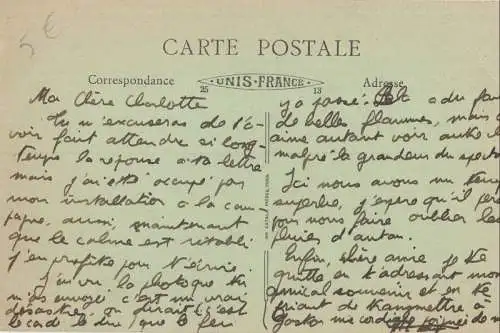 5 €
CARTE POSTALE
Correspondance
25 UNIS-FRANCE 13
Adresse
Ma Chère Charlotte
Tu m'excuseras de t'a-
voir fait attendre si long-
temps la réponse à ta lettre
mais j'ai été occupé par
mon installation à la cam
pagne, aussi, maintenant
que le calme est rétabli
j'en profite pour t'écrire
J'ai vu la photo que tu
m'as envoyé c'est un vrai
désastre, on dirait c'est
le cas de le dire que le feu
y a passé.
a du fai
de belles flammes, mais
aime autant voir autre
malgré la grandeur du spect
Ici nous avons un tem
superbe, j'espère qu'il
pour nous faire oublier les
pluies d'antan.
Enfin, chère amie je te
quitte en t'adressant mon
amical souvenir et en te
priant de transmettre à
Gaston